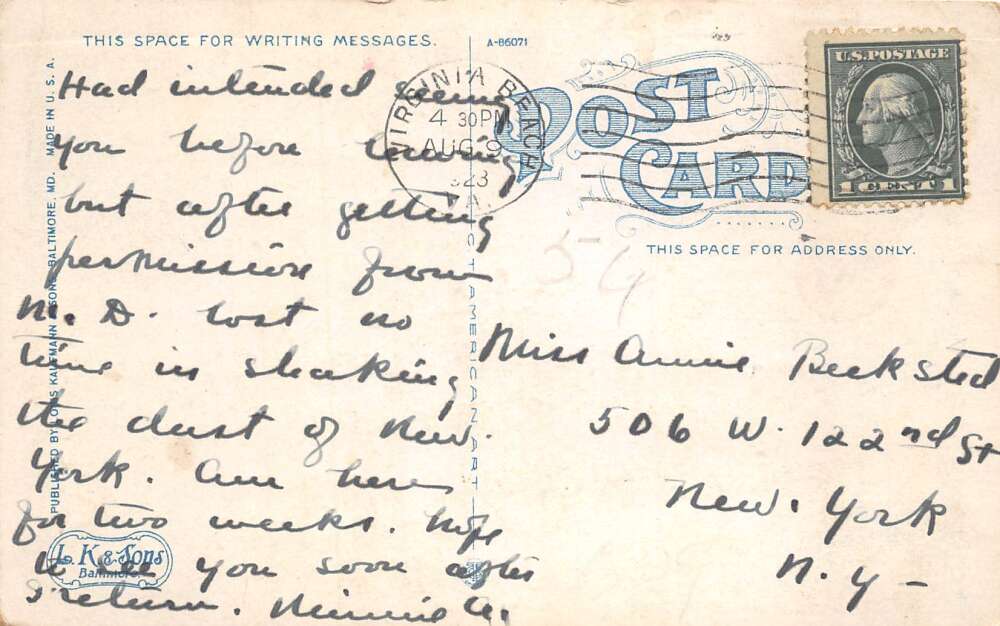 THIS SPACE FOR WRITING MESSAGES.
A-86071
Had intended seeing
you before leaving
but after getting
permission from
M.D. lost no
time in shaking
the dust of New.
York. Am here
for two weeks. Hope
to see you soon after
I return. Minnie
PUBLISHED BY LOUIS KAUFMANN & SONS, BALTIMORE, MD. MADE IN U.S.A.
L. K & Sons
Baltimore.
"C.T. AMERICAN ART"
VIRGINIA BEACH
4 30 PM
AUG 9
1923
VA.
POST
CARD
THIS SPACE FOR ADDRESS ONLY.
U.S. POSTAGE
1 CENT 1
Miss Annie Beeksted
506 W. 122nd St
New. York
N.Y-